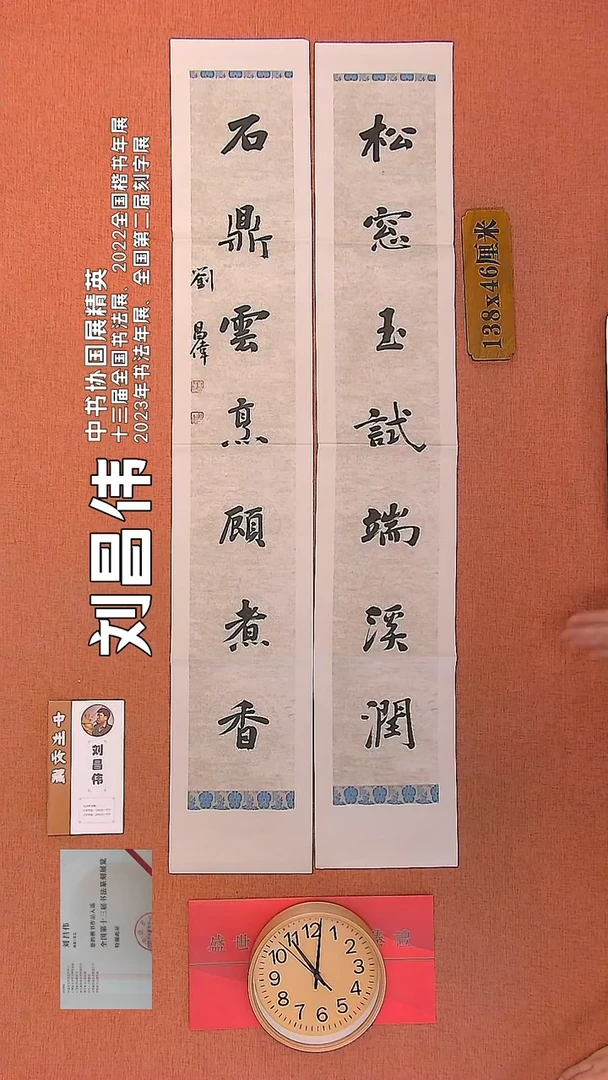 松窓玉試端溪潤
石鼎雲烹顧煮香
劉昌偉
138x46厘米
中书协国展精英
十三届全国书法展、2022全国楷书年展
2023年书法年展、全国第二届刻字展
刘昌伟
刘昌伟
刘昌伟
您的楷书作品入选
全国第十三届书法篆刻展览
特颁此证
盛世
12
1
2
3
4
5
6
7
8
9
10
11